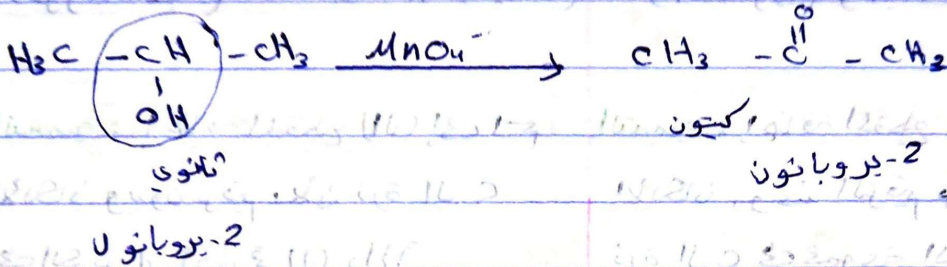 O
H3C - CH - CH3 MnO4⁻ → CH3 - C - CH3
OH
ثانوي كيتون
2-بروبانول 2-بروبانون